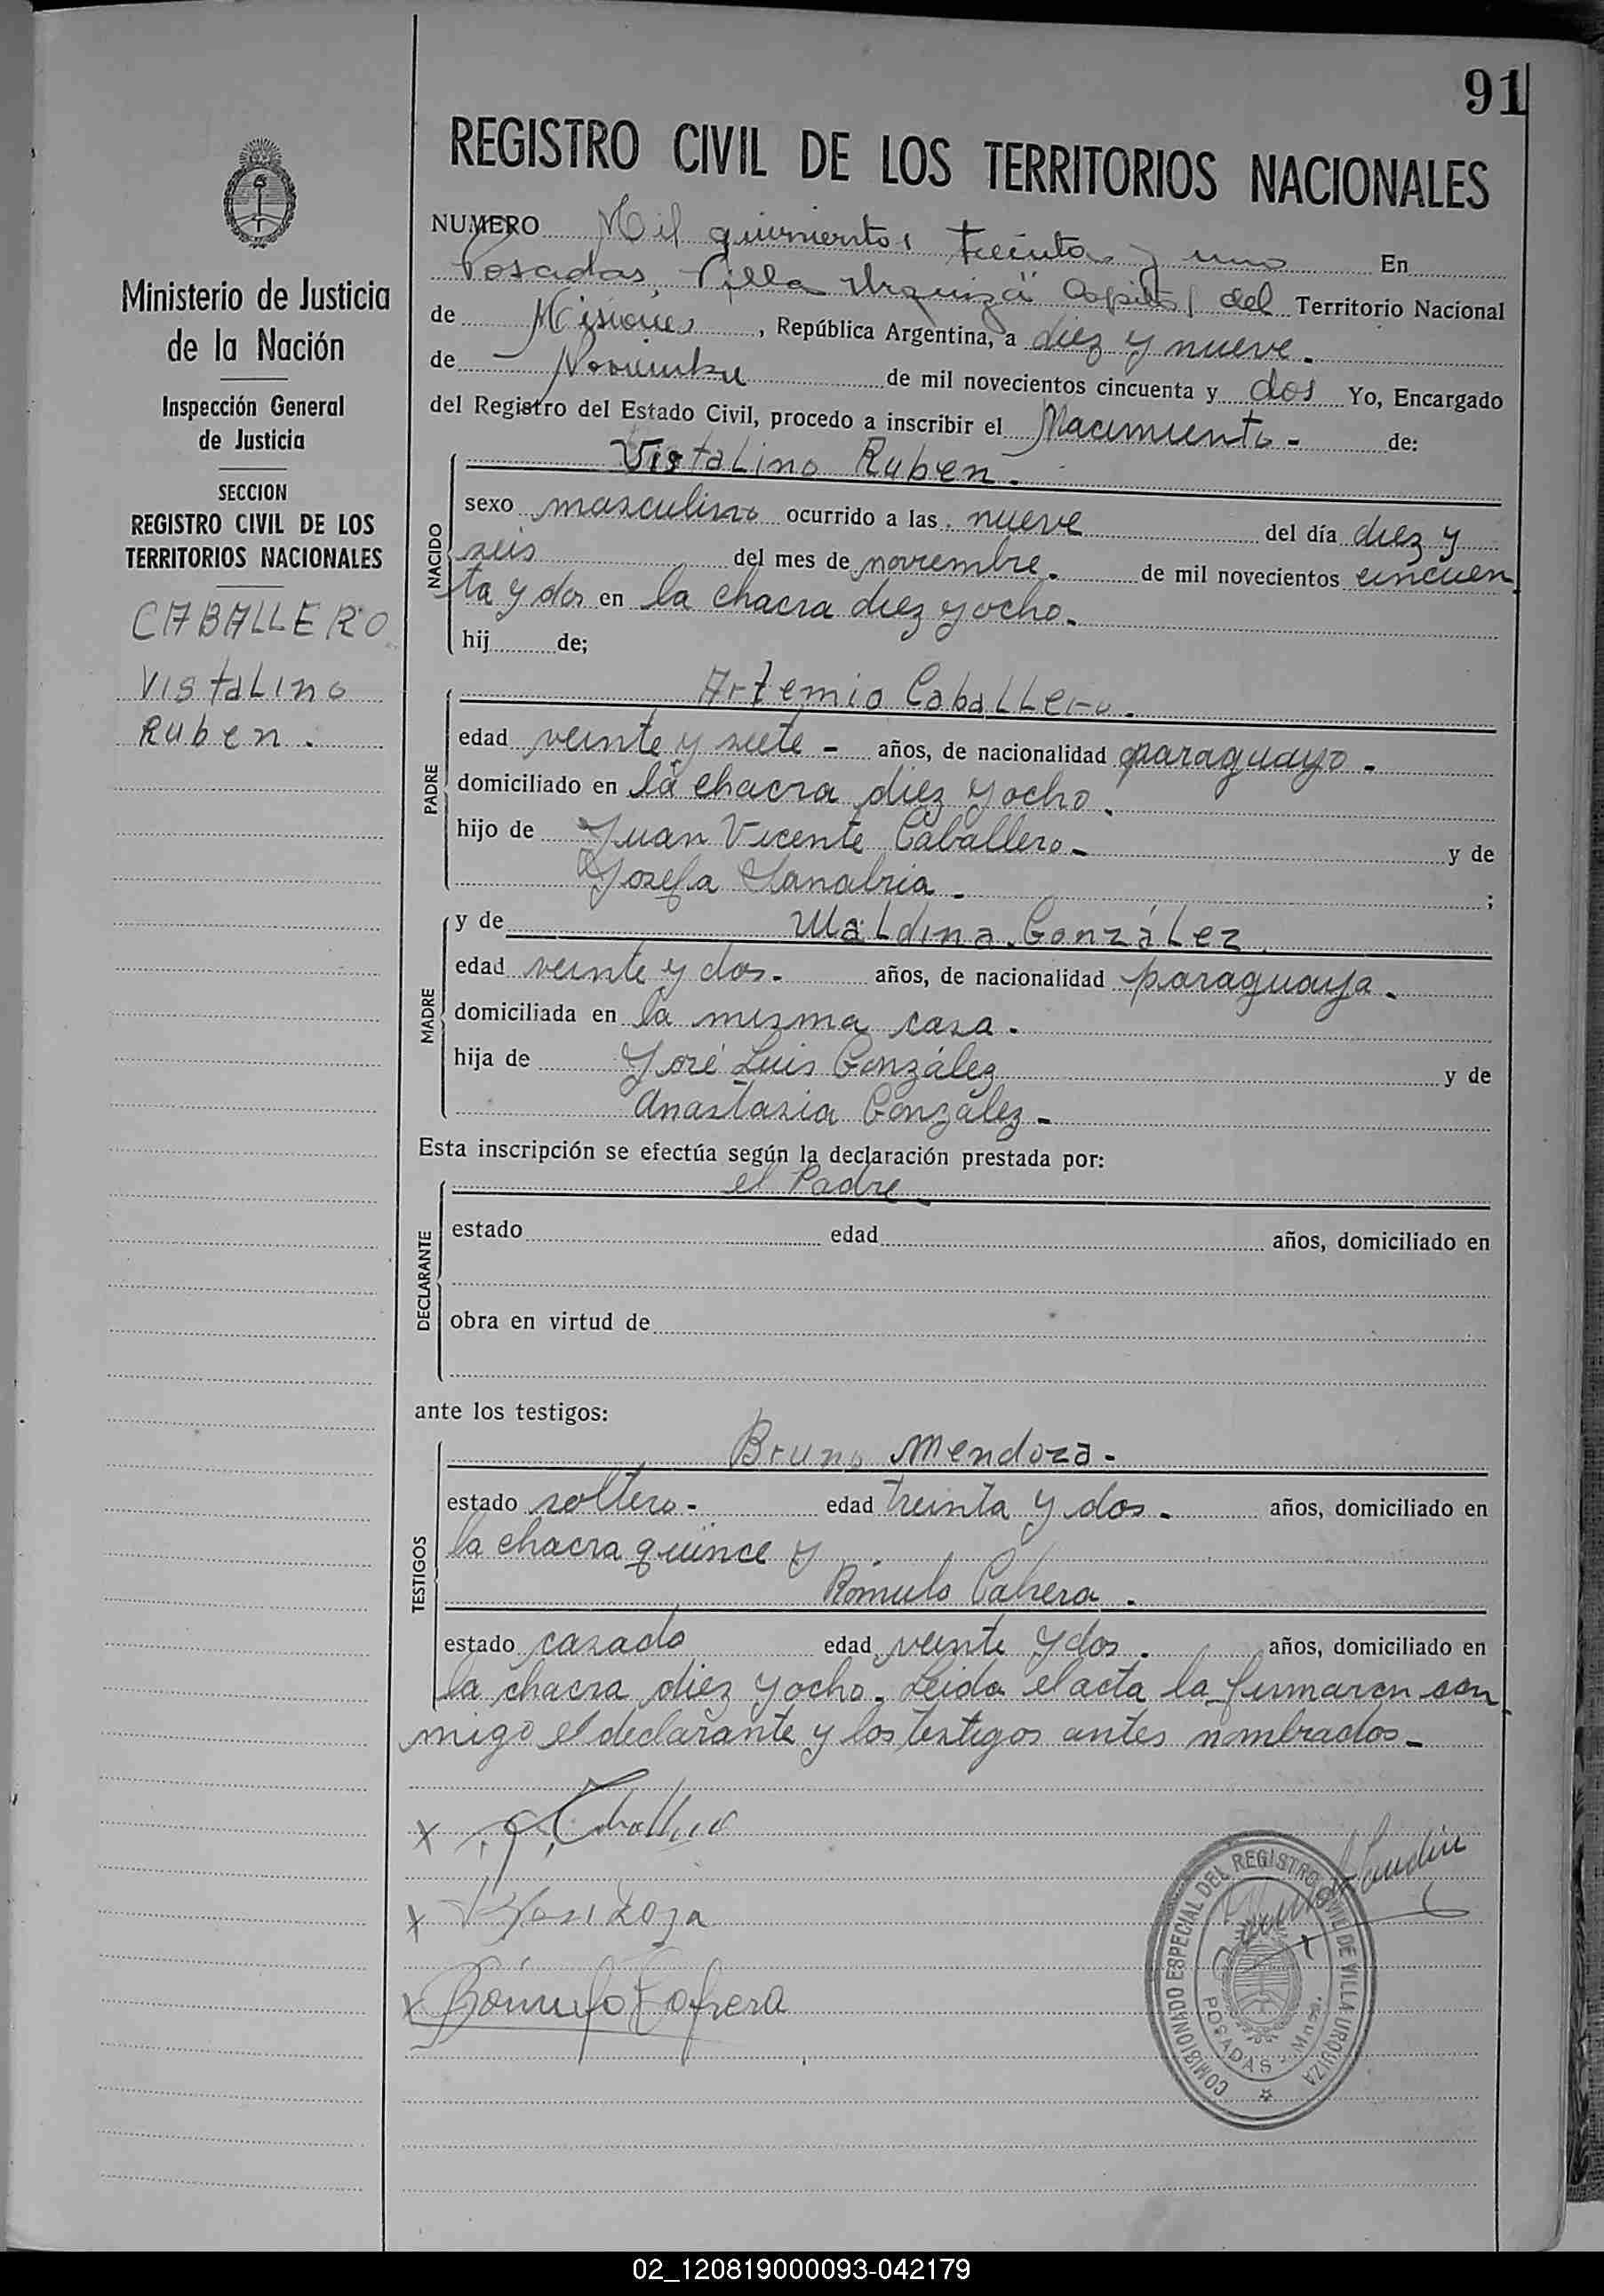 91
REGISTRO CIVIL DE LOS TERRITORIOS NACIONALES
NUMERO Mil quinientos treinta y uno En
Posadas, Villa Urquiza Capital del Territorio Nacional
de Misiones, República Argentina, a diez y nueve.
de Noviembre de mil novecientos cincuenta y dos Yo, Encargado
del Registro del Estado Civil, procedo a inscribir el Nacimiento - de:
Ministerio de Justicia
de la Nación
Inspección General
de Justicia
SECCION
REGISTRO CIVIL DE LOS
TERRITORIOS NACIONALES
CABALLERO
Vistalino
Ruben.
NACIDO
Vistalino Ruben.
sexo masculino ocurrido a las nueve del día diez y
seis del mes de noviembre. de mil novecientos cincuen
ta y dos en la chacra diez y ocho.
hij de;
PADRE
Artemio Caballero.
edad veinte y siete - años, de nacionalidad paraguayo -
domiciliado en la chacra diez y ocho.
hijo de Juan Vicente Caballero - y de
Josefa Sanabria - ;
MADRE
y de Ulaldina González.
edad veinte y dos. años, de nacionalidad paraguaya.
domiciliada en la misma casa.
hija de José Luis González y de
Anastasia González -
Esta inscripción se efectúa según la declaración prestada por:
DECLARANTE
el Padre -
estado edad años, domiciliado en
obra en virtud de
ante los testigos:
TESTIGOS
Bruno Mendoza -
estado soltero - edad treinta y dos - años, domiciliado en
la chacra quince y
Rómulo Cabrera.
estado casado edad veinte y dos. años, domiciliado en
la chacra diez y ocho. Leida el acta la firmaron con
migo el declarante y los testigos antes nombrados -
x Caballero
x Mendoza
x Rómulo Cabrera
COMISIONADO ESPECIAL DEL REGISTRO CIVIL DE VILLA URQUIZA
POSADAS - Mnes.
02_120819000093-042179